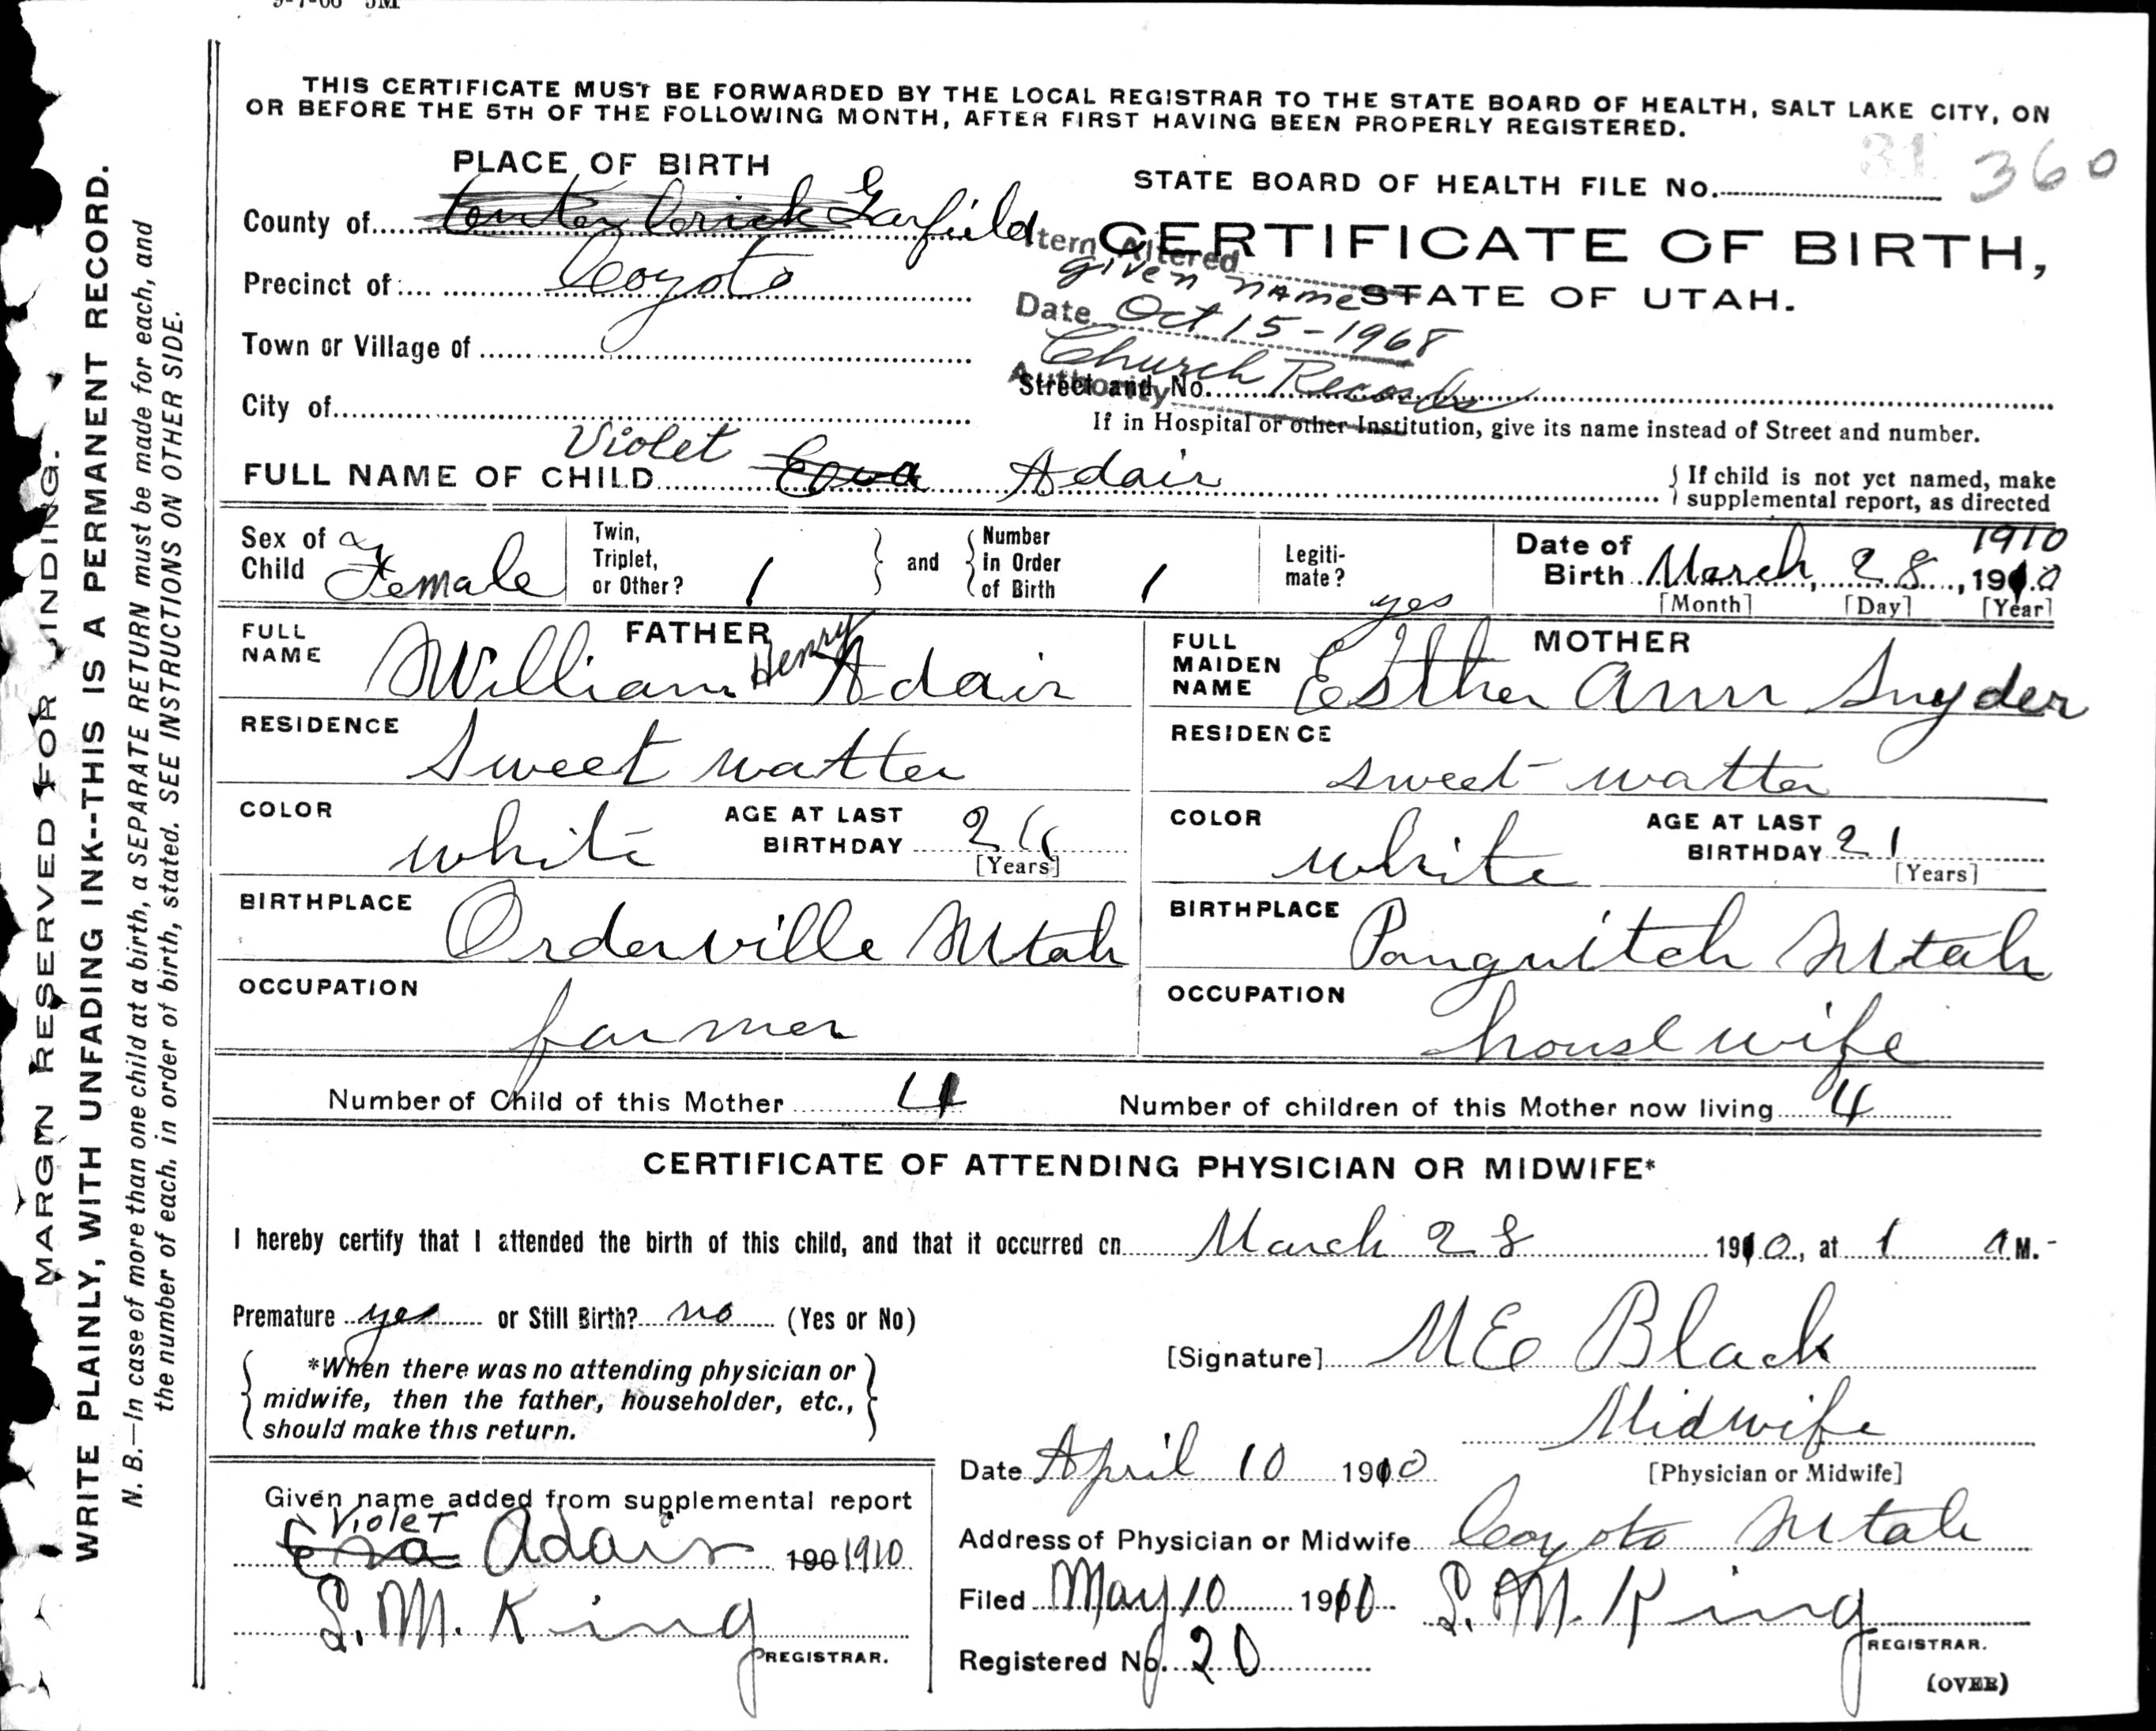 THIS CERTIFICATE MUST BE FORWARDED BY THE LOCAL REGISTRAR TO THE STATE BOARD OF HEALTH, SALT LAKE CITY, ON
OR BEFORE THE 5TH OF THE FOLLOWING MONTH, AFTER FIRST HAVING BEEN PROPERLY REGISTERED.
PLACE OF BIRTH
STATE BOARD OF HEALTH FILE No. 31 360
County of Garfield
CERTIFICATE OF BIRTH,
Item Altered given name
Precinct of Coyoto
STATE OF UTAH.
Date Oct 15-1968
Town or Village of
Authority Church Records
Street and No.
City of
If in Hospital or other Institution, give its name instead of Street and number.
FULL NAME OF CHILD Violet Eva Adair
If child is not yet named, make
supplemental report, as directed
Sex of Child Female
Twin, Triplet, or Other? 1 and Number in Order of Birth 1
Legitimate? yes
Date of Birth March 28, 1910 1910
[Month] [Day] [Year]
FATHER
FULL NAME William Henry Adair
RESIDENCE Sweet watter
COLOR white AGE AT LAST BIRTHDAY
[Years]
BIRTHPLACE Orderville Utah
OCCUPATION farmer
MOTHER
FULL MAIDEN NAME Esther Ann Snyder
RESIDENCE sweet watter
COLOR white AGE AT LAST BIRTHDAY 21
[Years]
BIRTHPLACE Panguitch Utah
OCCUPATION house wife
Number of Child of this Mother 4 Number of children of this Mother now living 4
CERTIFICATE OF ATTENDING PHYSICIAN OR MIDWIFE*
I hereby certify that I attended the birth of this child, and that it occurred on March 28 1910, at 1 A M.
Premature yes or Still Birth? no (Yes or No)
*When there was no attending physician or
midwife, then the father, householder, etc.,
should make this return.
[Signature] M E Black
Midwife
[Physician or Midwife]
Date April 10 1910
Address of Physician or Midwife Coyoto Utah
Filed May 10 1910 S. M. King
REGISTRAR.
Registered No. 20
(OVER)
Given name added from supplemental report
Violet
Eva Adair 190 1910
S. M. King
REGISTRAR.
MARGIN RESERVED FOR BINDING.
WRITE PLAINLY, WITH UNFADING INK--THIS IS A PERMANENT RECORD.
N. B.—In case of more than one child at a birth, a SEPARATE RETURN must be made for each, and
the number of each, in order of birth, stated. SEE INSTRUCTIONS ON OTHER SIDE.